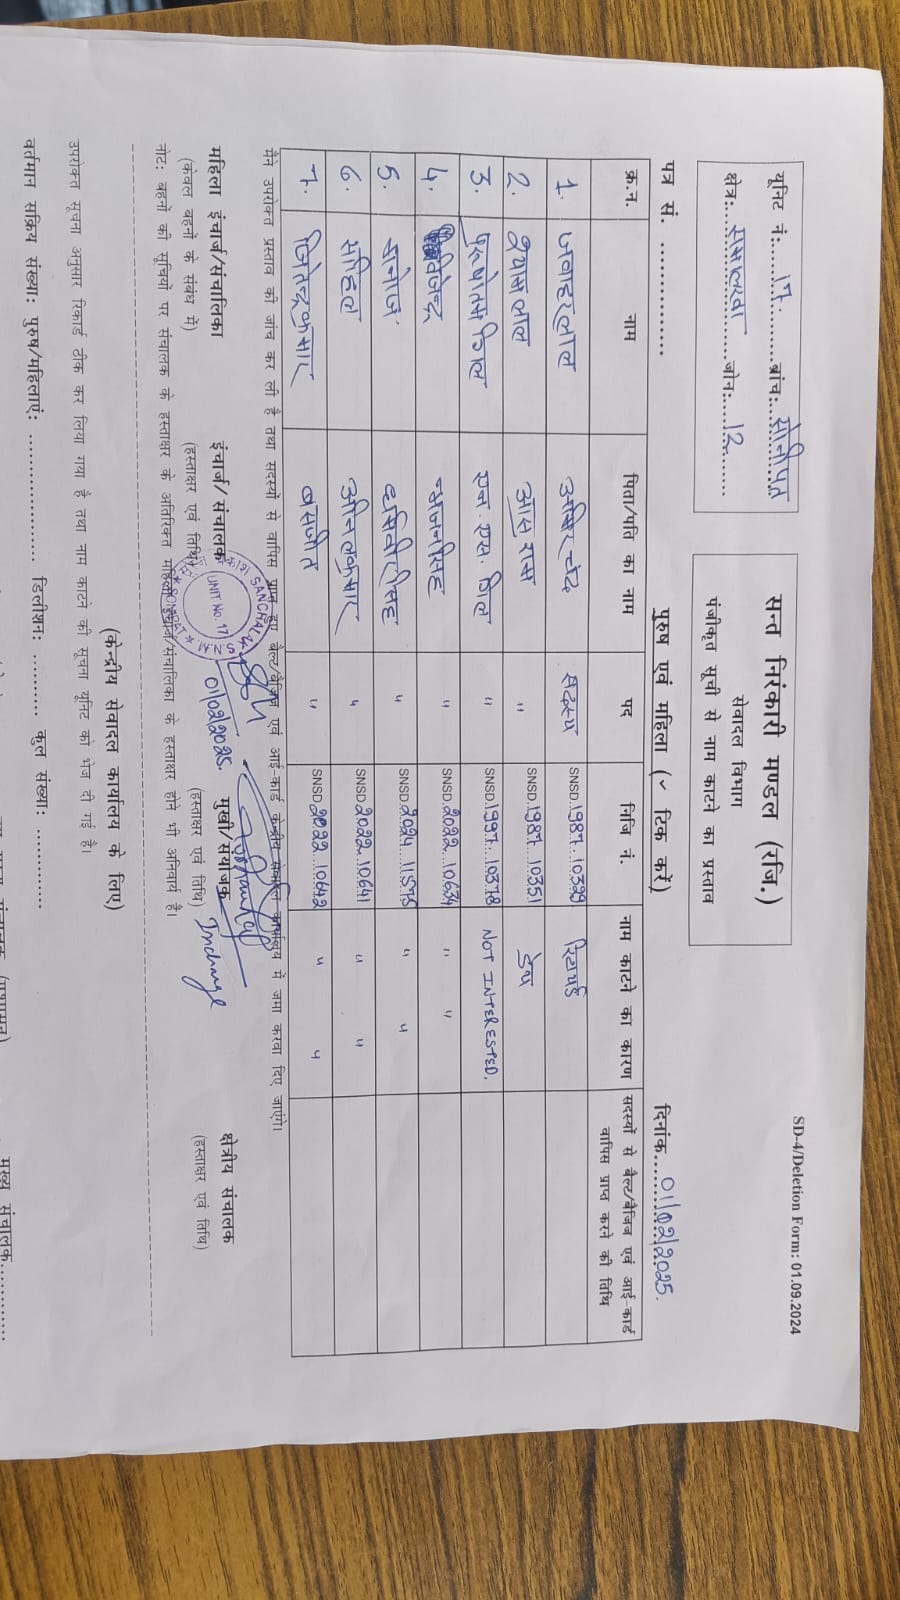 SD-4/Deletion Form: 01.09.2024
यूनिट नं:......17.........ब्रांच:...सोनीपत
क्षेत्र:...समालखा......जोन:....12.......
सन्त निरंकारी मण्डल (रजि.)
सेवादल विभाग
पंजीकृत सूची से नाम काटने का प्रस्ताव
पत्र सं. .................. पुरुष एवं महिला (✓ टिक करें) दिनांक...01/02/2025.
क्र.न. नाम पिता/पति का नाम पद रजि नं. नाम काटने का कारण सदस्यों से बैल्ट/बैजिज एवं आई-कार्ड वापिस प्राप्त करने की तिथि
1. जवाहरलाल सदस्य SNSD..1987...10329 रिटायर्ड
2. श्याम लाल आसा राम " SNSD..1987...10351 डेथ
3. पुरुषोतम गिल एन एस. गिल " SNSD.1997...10378 NOT INTERESTED.
4. " SNSD.2022...10634 " "
5. मनोज " SNSD.2024...11575 " "
6. साहिल अनिल कुमार " SNSD.2022...10641 " "
7. जितेन्द्र कुमार बलजीत " SNSD.2022...10642 " "
मैंने उपरोक्त प्रस्ताव की जांच कर ली है तथा सदस्यों से वापिस प्राप्त हुए बैल्ट/बैजिज एवं आई-कार्ड केन्द्रीय सेवादल कार्यालय में जमा करवा दिए जाएंगे।
SANCHALAK
UNIT No. 17
S.N.M.
SONIPAT
01/02/2025.
Incharge
महिला इंचार्ज/संचालिका इंचार्ज/संचालक मुखी/संयोजक क्षेत्रीय संचालक
(केवल बहनों के संबंध में) (हस्ताक्षर एवं तिथि) (हस्ताक्षर एवं तिथि) (हस्ताक्षर एवं तिथि)
नोट: बहनों की सूचियों पर संचालक के हस्ताक्षर के अतिरिक्त महिला इंचार्ज/संचालिका के हस्ताक्षर होने भी अनिवार्य है।
(केन्द्रीय सेवादल कार्यालय के लिए)
उपरोक्त सूचना अनुसार रिकार्ड ठीक कर लिया गया है तथा नाम काटने की सूचना यूनिट को भेज दी गई है।
वर्तमान सक्रिय संख्या: पुरुष/महिलाएं: .................. डिलीशन: .......... कुल संख्या: ..............